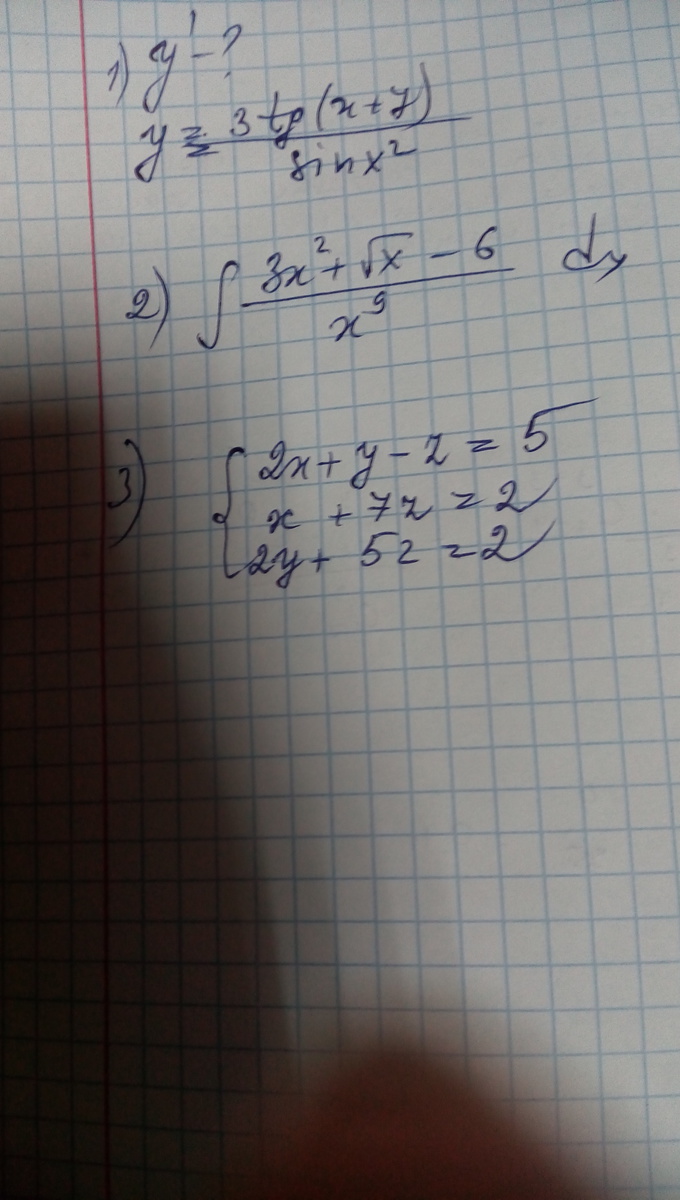 1) y' - ?
y = 3 tg (x + y) / sin x²
2) ∫ (3x² + √x - 6) / x⁹ dx
3) { 2x + y - z = 5
x + 7z = 2
2y + 5z = 2